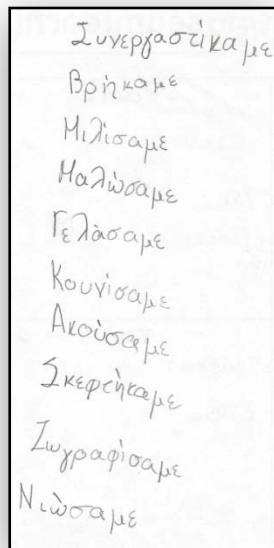 Συνεργαστίκαμε
Βρήκαμε
Μιλίσαμε
Μαλώσαμε
Γελάσαμε
Κουνίσαμε
Ακούσαμε
Σκεφτήκαμε
Ζωγραφίσαμε
Νιώσαμε